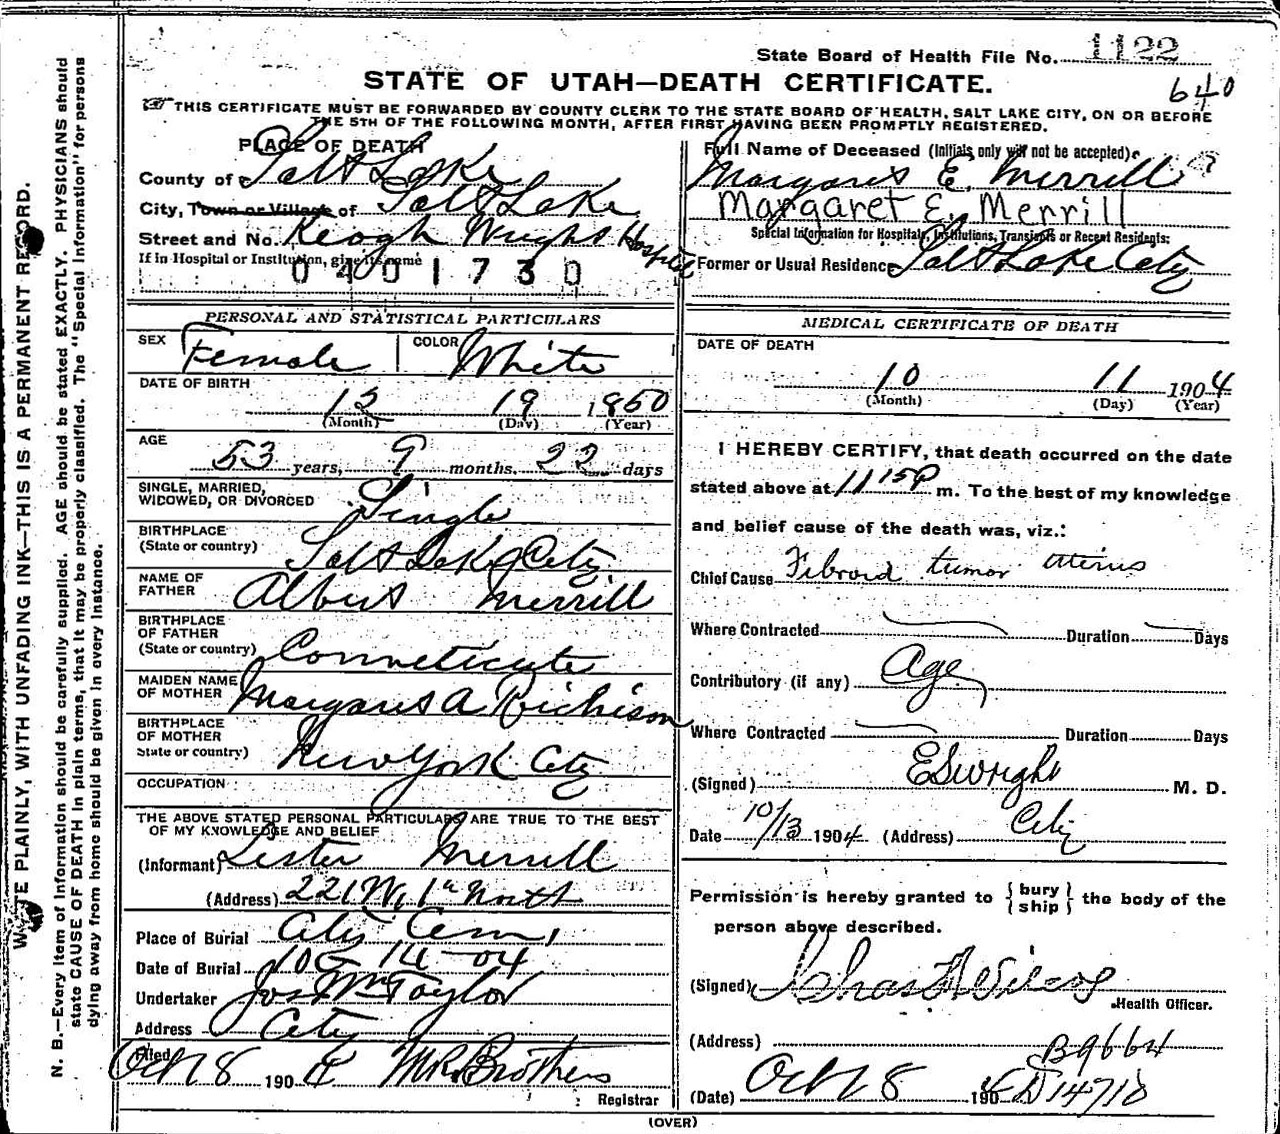 State Board of Health File No. 1122
STATE OF UTAH—DEATH CERTIFICATE.
640
THIS CERTIFICATE MUST BE FORWARDED BY COUNTY CLERK TO THE STATE BOARD OF HEALTH, SALT LAKE CITY, ON OR BEFORE
THE 5TH OF THE FOLLOWING MONTH, AFTER FIRST HAVING BEEN PROMPTLY REGISTERED.
PLACE OF DEATH
County of Salt Lake
City, Town or Village of Salt Lake
Street and No. Keogh Wright Hospital
If in Hospital or Institution, give its name
0401730
Full Name of Deceased (Initials only will not be accepted).
Margaret E. Merrill
Margaret E. Merrill
Special Information for Hospitals, Institutions, Transients or Recent Residents:
Former or Usual Residence Salt Lake City
PERSONAL AND STATISTICAL PARTICULARS
SEX Female COLOR White
DATE OF BIRTH
12 19 1850
(Month) (Day) (Year)
AGE
53 years, 9 months, 22 days
SINGLE, MARRIED,
WIDOWED, OR DIVORCED Single
BIRTHPLACE
(State or country) Salt Lake City
NAME OF
FATHER Albert Merrill
BIRTHPLACE
OF FATHER
(State or country) Conneticute
MAIDEN NAME
OF MOTHER Margaret A Richison
BIRTHPLACE
OF MOTHER
State or country) New York City
OCCUPATION
THE ABOVE STATED PERSONAL PARTICULARS ARE TRUE TO THE BEST
OF MY KNOWLEDGE AND BELIEF
(Informant) Lester Merrill
(Address) 221 W. 1st North
Place of Burial City Cem.
Date of Burial 10-14-04
Undertaker Jos Wm Taylor
Address City
Filed Oct 18 1904 M R. Brothers
Registrar
MEDICAL CERTIFICATE OF DEATH
DATE OF DEATH
10 11 1904
(Month) (Day) (Year)
I HEREBY CERTIFY, that death occurred on the date
stated above at 11 15 P m. To the best of my knowledge
and belief cause of the death was, viz.:
Chief Cause Fibroid tumor uterus
Where Contracted Duration Days
Contributory (if any) Age
Where Contracted Duration Days
(Signed) E S Wright M. D.
Date 10/13 1904 (Address) City
Permission is hereby granted to { bury ship } the body of the
person above described.
(Signed) Chas Wilcox
Health Officer.
(Address) B9664
(Date) Oct 18 1904 D14710
(OVER)
WRITE PLAINLY, WITH UNFADING INK—THIS IS A PERMANENT RECORD.
N. B.—Every item of information should be carefully supplied. AGE should be stated EXACTLY. PHYSICIANS should
state CAUSE OF DEATH in plain terms, that it may be properly classified. The "Special Information" for persons
dying away from home should be given in every instance.